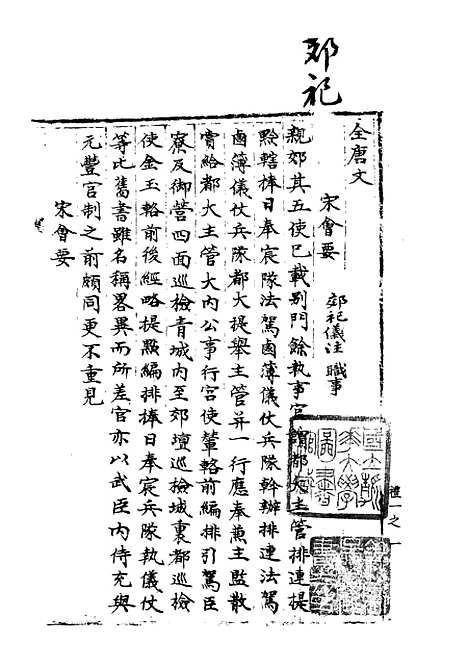 郊祀
全唐文
宋會要
郊祀儀注 職事
親郊其五使已載别門餘執事官謂都大主管排連提
㸃轄捧日奉宸隊法駕鹵薄儀仗兵隊幹辦排連法駕
鹵薄儀仗兵隊都大提舉主管并一行應奉兼主監散
賞給都大主管大内公事行宫使輦輅前編排引駕臣
寮及御營四面巡檢青城内至郊壇巡檢城裏都巡檢
使金玉輅前後經略提㸃編排捧日奉宸兵隊執儀仗
等比舊書雖名稱畧異而所差官亦以武臣内侍充與
元豐官制之前頗同更不重見
宋會要
禮一之一